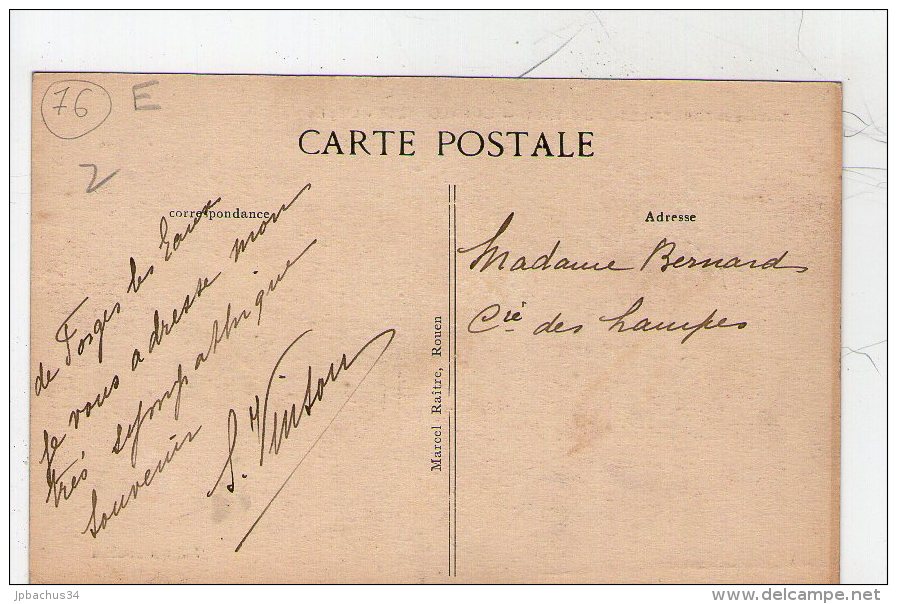 76 E
2
CARTE POSTALE
correspondance
de Forges les Eaux
Je vous adresse mon
très sympathique
souvenir
S. Vinson
Marcel Raître, Rouen
Adresse
Madame Bernard
Cie des Lampes
jpbachus34
www.delcampe.net